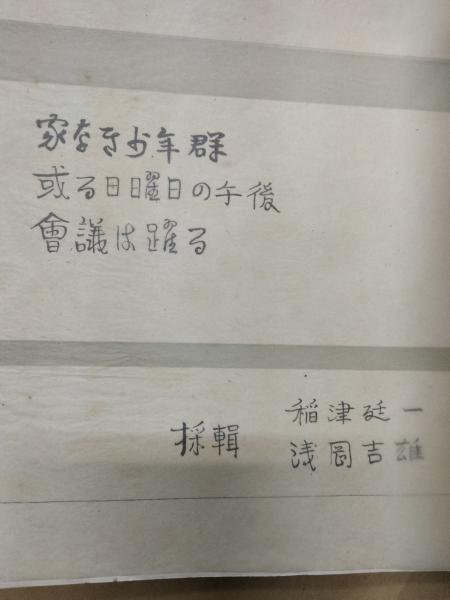 家なき少年群
或る日曜日の午後
會議は躍る
採輯
稲津延一
浅岡吉雄